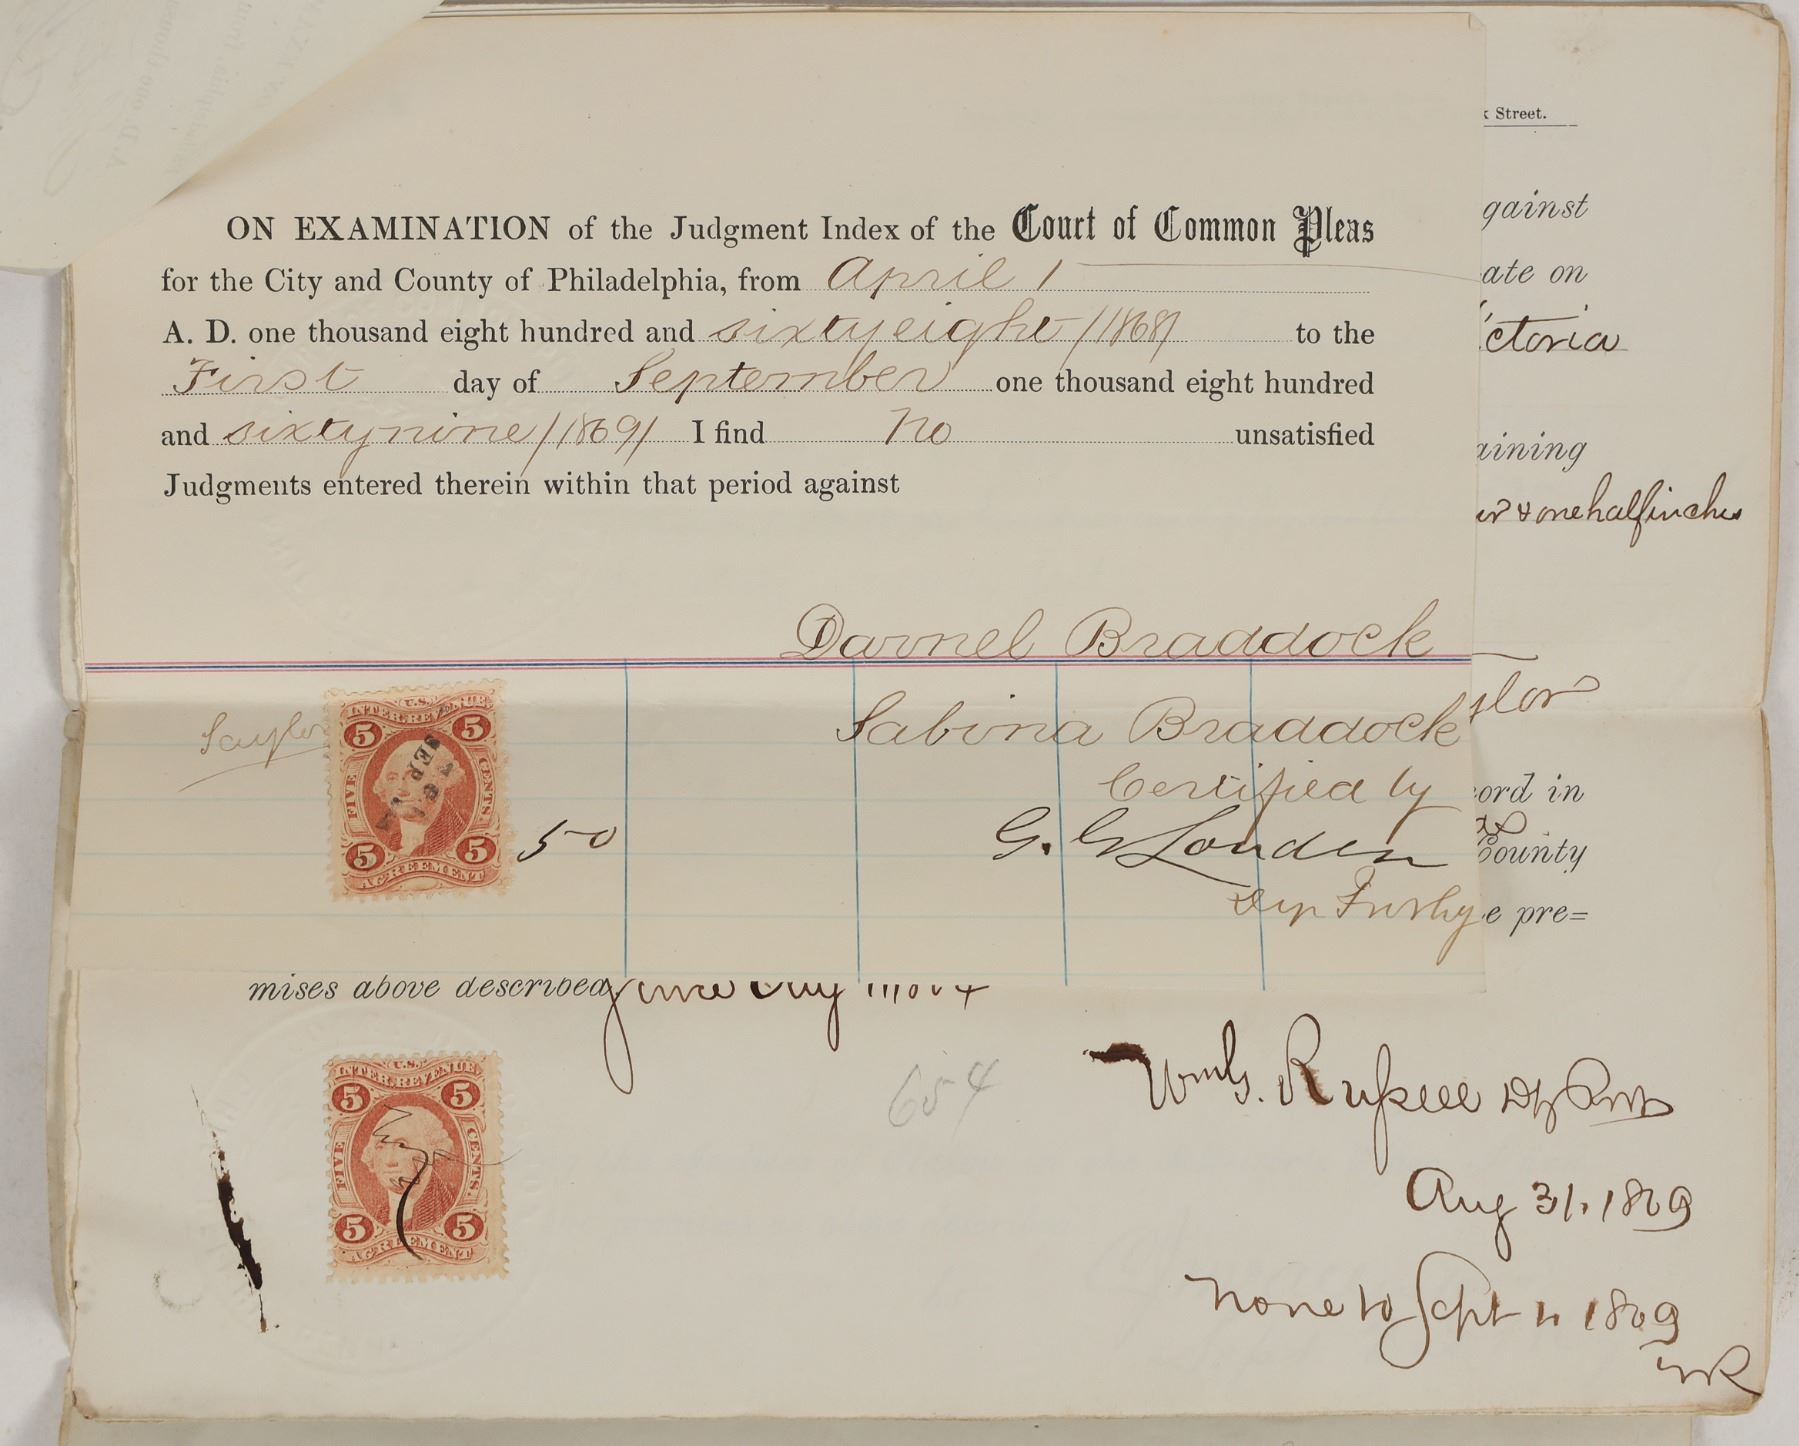 k Street.
ON EXAMINATION of the Judgment Index of the Court of Common Pleas
for the City and County of Philadelphia, from April 1
A. D. one thousand eight hundred and sixty eight /1868/ to the
First day of September one thousand eight hundred
and sixty nine /1869/ I find No unsatisfied
Judgments entered therein within that period against
Darnel Braddock
Sabina Braddock
Certified by
G. G. Louden
Dep Prothy
Saylor
U.S.
INTER. REVENUE
5 5
FIVE CENTS.
SEP
5 5
AGREEMENT
50
gainst
ate on
ictoria
aining
ur & one half inches
ylor
ord in
County
e pre=
mises above described since July 1 1864
654
Wm G. Russell
Aug 31. 1869
None to Sept 4 1869
WR
U.S.
INTER. REVENUE
5 5
FIVE CENTS.
5 5
AGREEMENT